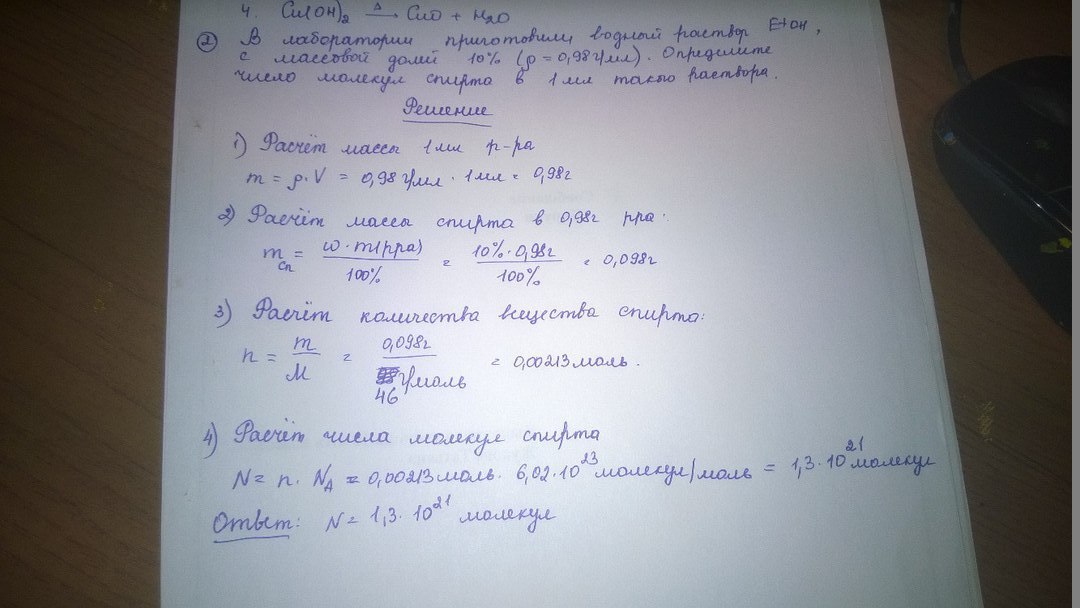 4. Cu(OH)₂ →Δ CuO + H₂O
② В лаборатории приготовили водный раствор EtOH,
с массовой долей 10% (ρ = 0,98 г/мл). Определите
число молекул спирта в 1 мл такого раствора.
Решение
1) Расчёт массы 1 мл р-ра
m = ρ·V = 0,98 г/мл · 1 мл = 0,98г
2) Расчёт массы спирта в 0,98г рра:
mсп = ω·m(рра)/100% = 10%·0,98г/100% = 0,098г
3) Расчёт количества вещества спирта:
n = m/M = 0,098г/46 г/моль = 0,00213 моль.
4) Расчёт числа молекул спирта
N = n · N_A = 0,00213 моль · 6,02·10²³ молекул/моль = 1,3·10²¹ молекул
Ответ: N = 1,3·10²¹ молекул